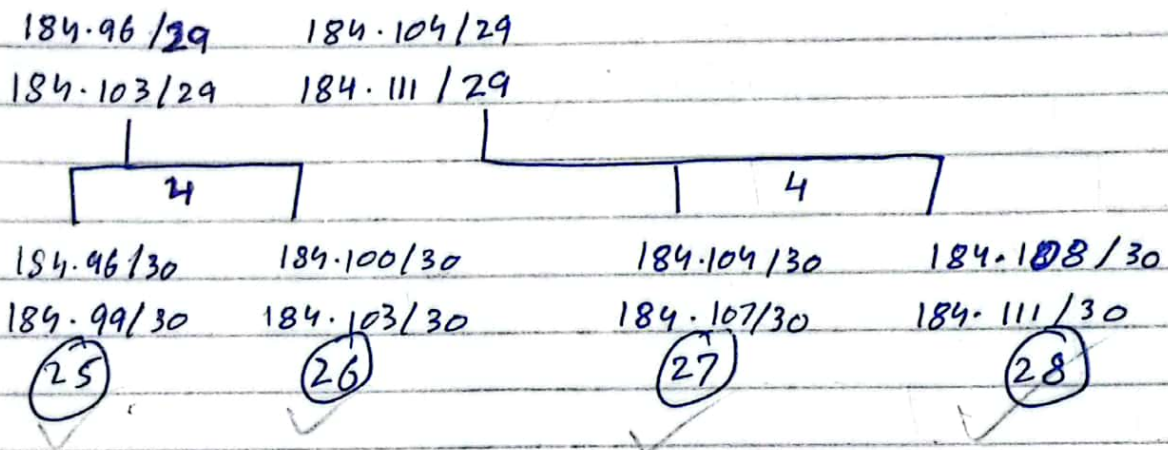 184.96/29 184.104/29
184.103/29 184.111/29
4 4
184.96/30 184.100/30 184.104/30 184.108/30
184.99/30 184.103/30 184.107/30 184.111/30
25 26 27 28